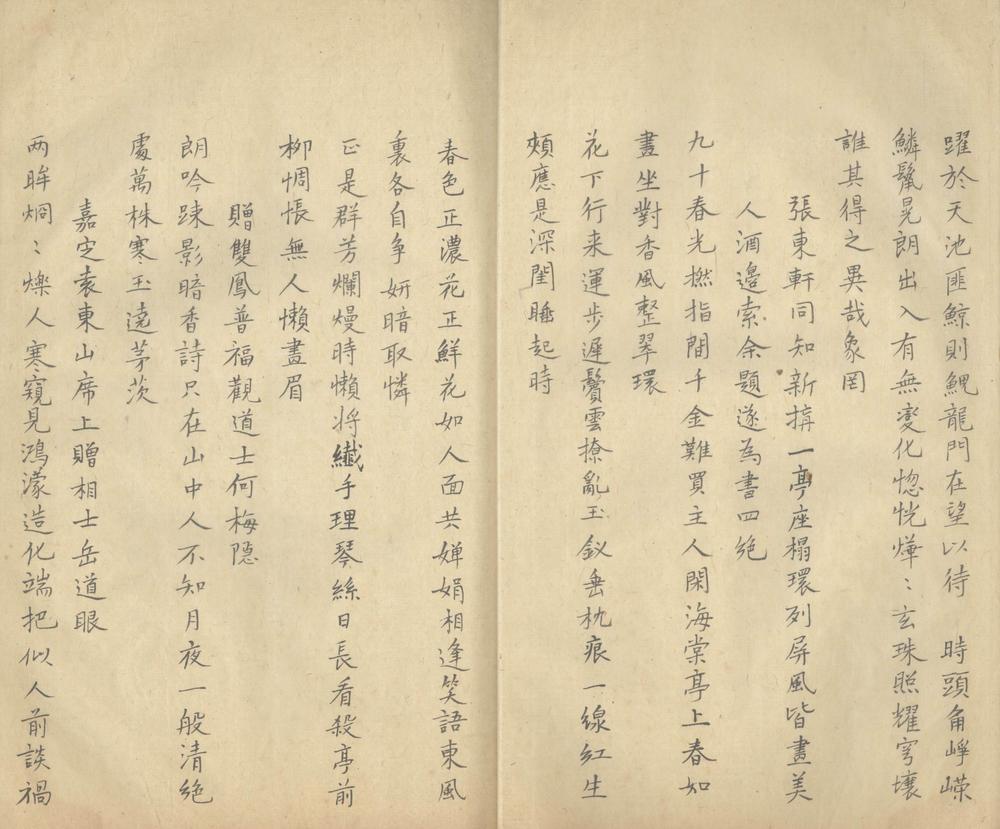 躍於天池匪鯨則鯤龍門在望以待　時頭角崢嶸
鱗鬣晃朗出入有無變化惚恍燁〻玄珠照耀穹壤
誰其得之異哉象罔
張東軒同知新搆一亭座榻環列屏風皆畫美
人酒邊索余題遂為書四絶
九十春光撚指間千金難買主人閑海棠亭上春如
晝坐對香風整翠環
花下行来運步遲鬢雲撩亂玉釵垂枕痕一線紅生
頰應是深閨睡起時
春色正濃花正鮮花如人面共嬋娟相逢笑語東風
裏各自争妍暗取憐
正是群芳爛熳時懶将纖手理琴絲日長看殺亭前
柳惆悵無人懶畫眉
贈雙鳳普福觀道士何梅隠
朗吟踈影暗香詩只在山中人不知月夜一般清絶
處萬株寒玉遶茅茨
嘉定袁東山席上贈相士岳道眼
两眸烱〻爍人寒窺見鴻濛造化端把似人前談禍